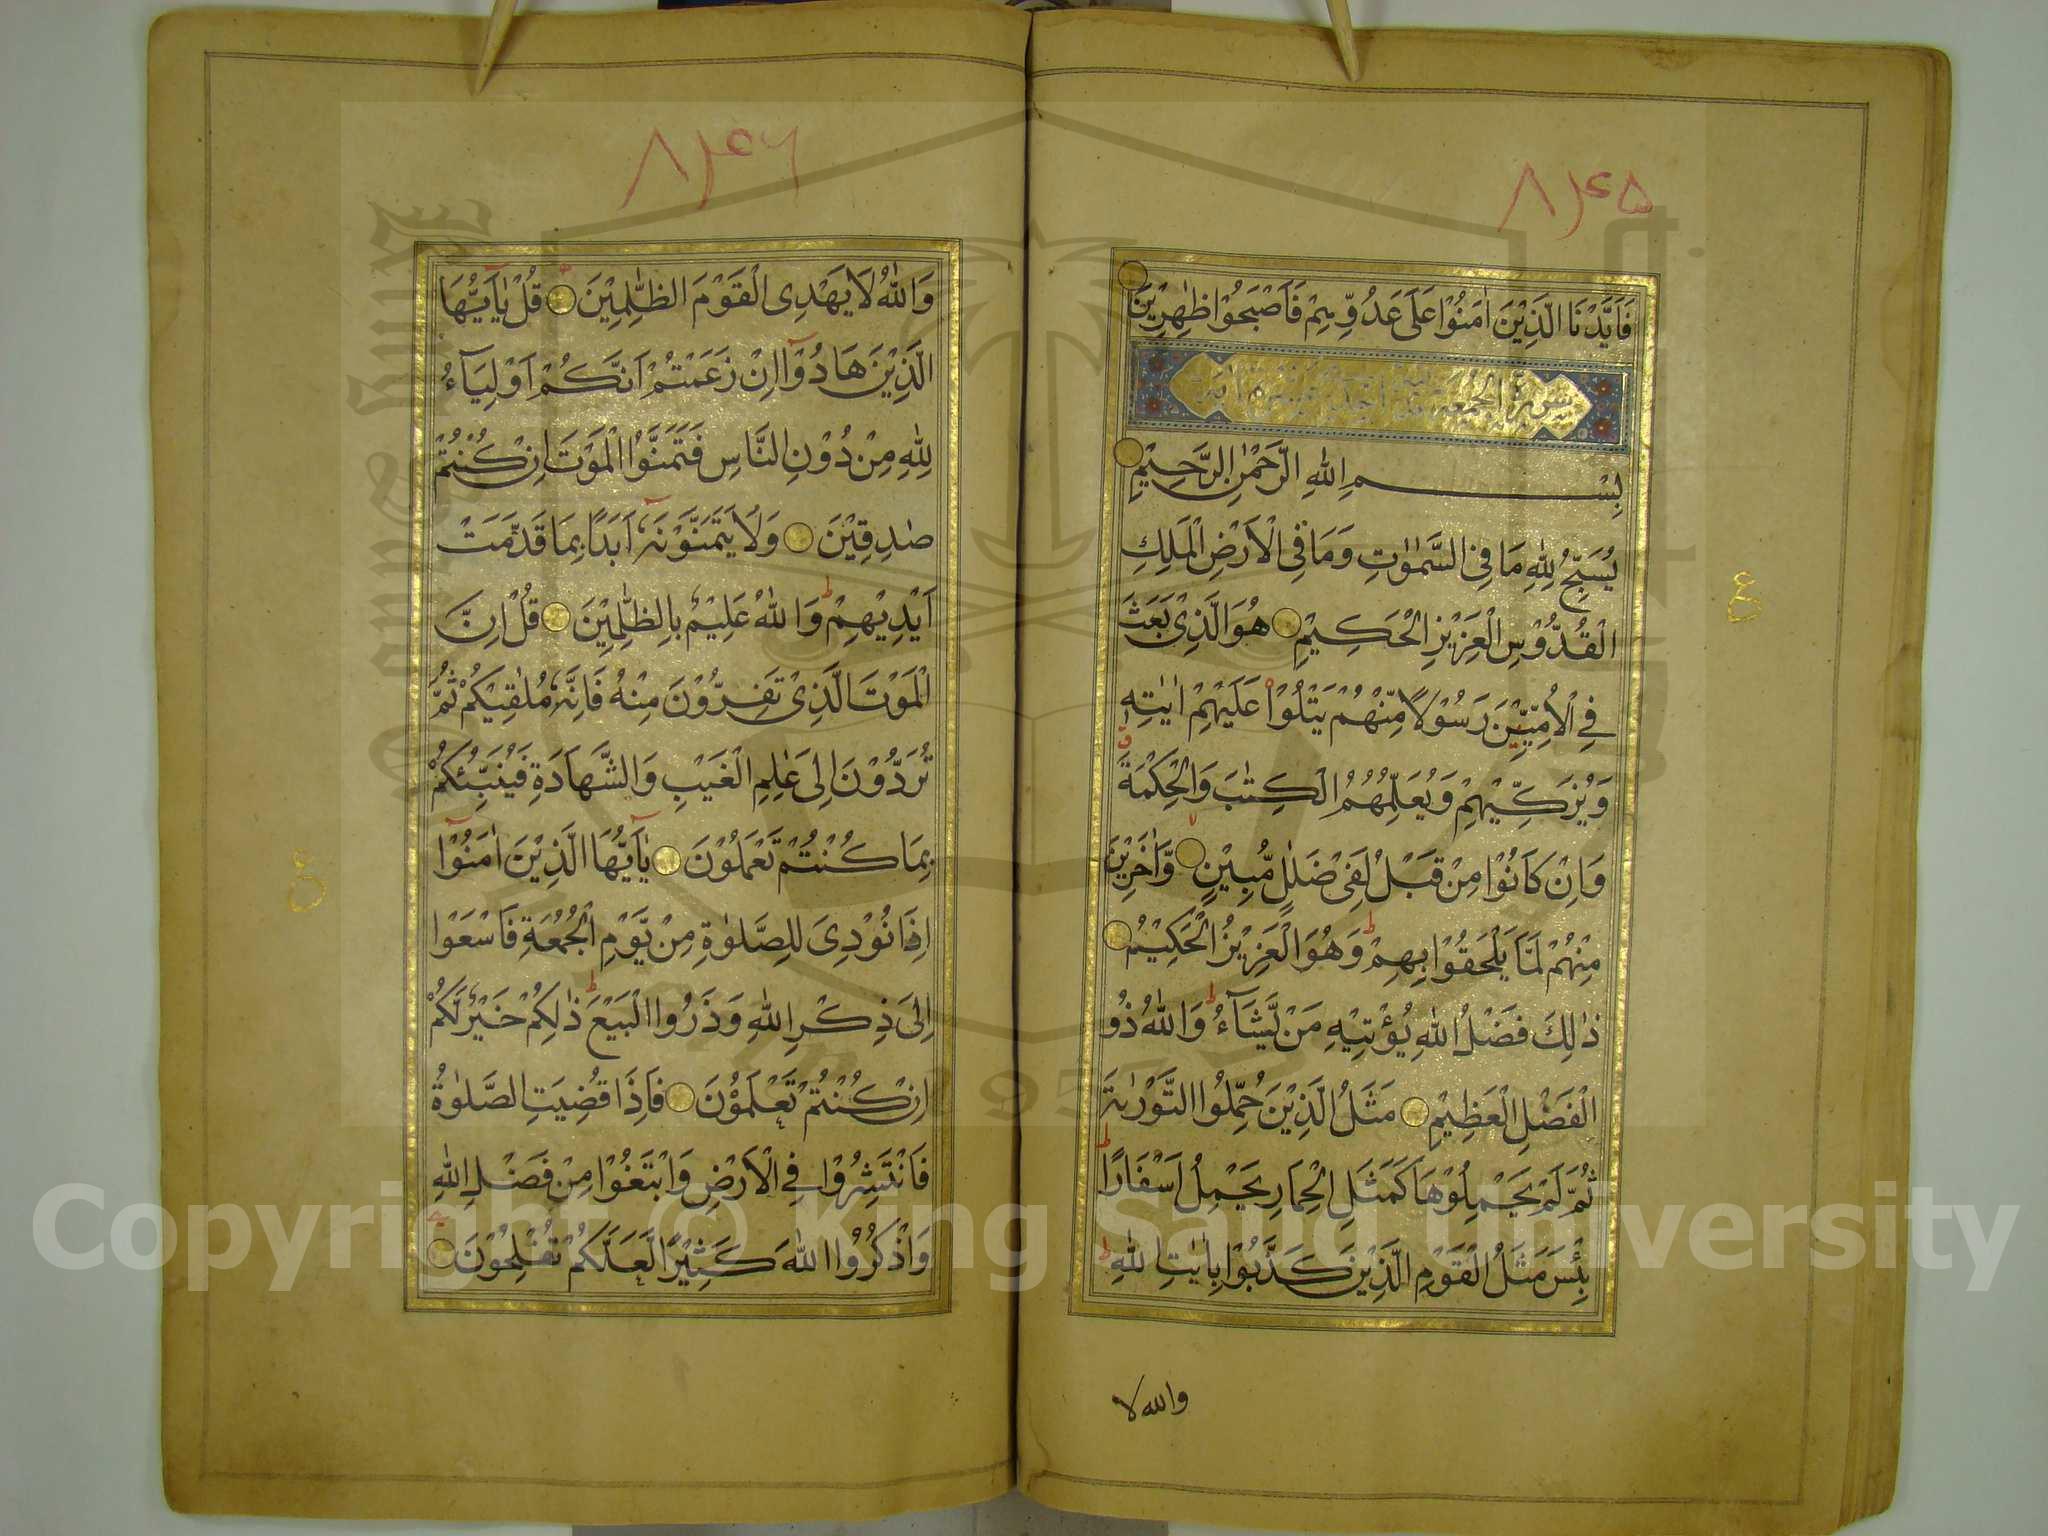 ٨٢٤٥
فَاَيَّدْنَا الَّذِيْنَ اٰمَنُوْا عَلٰى عَدُوِّهِمْ فَاَصْبَحُوْا ظٰهِرِيْنَ
سورة الجمعة
بِسْمِ اللّٰهِ الرَّحْمٰنِ الرَّحِيْمِ
يُسَبِّحُ لِلّٰهِ مَا فِى السَّمٰوٰتِ وَمَا فِى الْاَرْضِ الْمَلِكِ
الْقُدُّوْسِ الْعَزِيْزِ الْحَكِيْمِ هُوَ الَّذِىْ بَعَثَ
فِى الْاُمِّيّٖنَ رَسُوْلًا مِّنْهُمْ يَتْلُوْا عَلَيْهِمْ اٰيٰتِهٖ
وَيُزَكِّيْهِمْ وَيُعَلِّمُهُمُ الْكِتٰبَ وَالْحِكْمَةَ
وَاِنْ كَانُوْا مِنْ قَبْلُ لَفِىْ ضَلٰلٍ مُّبِيْنٍ وَّاٰخَرِيْنَ
مِنْهُمْ لَمَّا يَلْحَقُوْا بِهِمْ وَهُوَ الْعَزِيْزُ الْحَكِيْمُ
ذٰلِكَ فَضْلُ اللّٰهِ يُؤْتِيْهِ مَنْ يَّشَآءُ وَاللّٰهُ ذُو
الْفَضْلِ الْعَظِيْمِ مَثَلُ الَّذِيْنَ حُمِّلُوا التَّوْرٰىةَ
ثُمَّ لَمْ يَحْمِلُوْهَا كَمَثَلِ الْحِمَارِ يَحْمِلُ اَسْفَارًا
بِئْسَ مَثَلُ الْقَوْمِ الَّذِيْنَ كَذَّبُوْا بِاٰيٰتِ اللّٰهِ
والله لا
ع
٨٢٤٦
وَاللّٰهُ لَا يَهْدِى الْقَوْمَ الظّٰلِمِيْنَ قُلْ يٰٓاَيُّهَا
الَّذِيْنَ هَادُوْٓا اِنْ زَعَمْتُمْ اَنَّكُمْ اَوْلِيَآءُ
لِلّٰهِ مِنْ دُوْنِ النَّاسِ فَتَمَنَّوُا الْمَوْتَ اِنْ كُنْتُمْ
صٰدِقِيْنَ وَلَا يَتَمَنَّوْنَهٗٓ اَبَدًا بِمَا قَدَّمَتْ
اَيْدِيْهِمْ وَاللّٰهُ عَلِيْمٌ بِالظّٰلِمِيْنَ قُلْ اِنَّ
الْمَوْتَ الَّذِىْ تَفِرُّوْنَ مِنْهُ فَاِنَّهٗ مُلٰقِيْكُمْ ثُمَّ
تُرَدُّوْنَ اِلٰى عٰلِمِ الْغَيْبِ وَالشَّهَادَةِ فَيُنَبِّئُكُمْ
بِمَا كُنْتُمْ تَعْمَلُوْنَ يٰٓاَيُّهَا الَّذِيْنَ اٰمَنُوْٓا
اِذَا نُوْدِىَ لِلصَّلٰوةِ مِنْ يَّوْمِ الْجُمُعَةِ فَاسْعَوْا
اِلٰى ذِكْرِ اللّٰهِ وَذَرُوا الْبَيْعَ ذٰلِكُمْ خَيْرٌ لَّكُمْ
اِنْ كُنْتُمْ تَعْلَمُوْنَ فَاِذَا قُضِيَتِ الصَّلٰوةُ
فَانْتَشِرُوْا فِى الْاَرْضِ وَابْتَغُوْا مِنْ فَضْلِ اللّٰهِ
وَاذْكُرُوا اللّٰهَ كَثِيْرًا لَّعَلَّكُمْ تُفْلِحُوْنَ
ع
Copyright © King Saud University